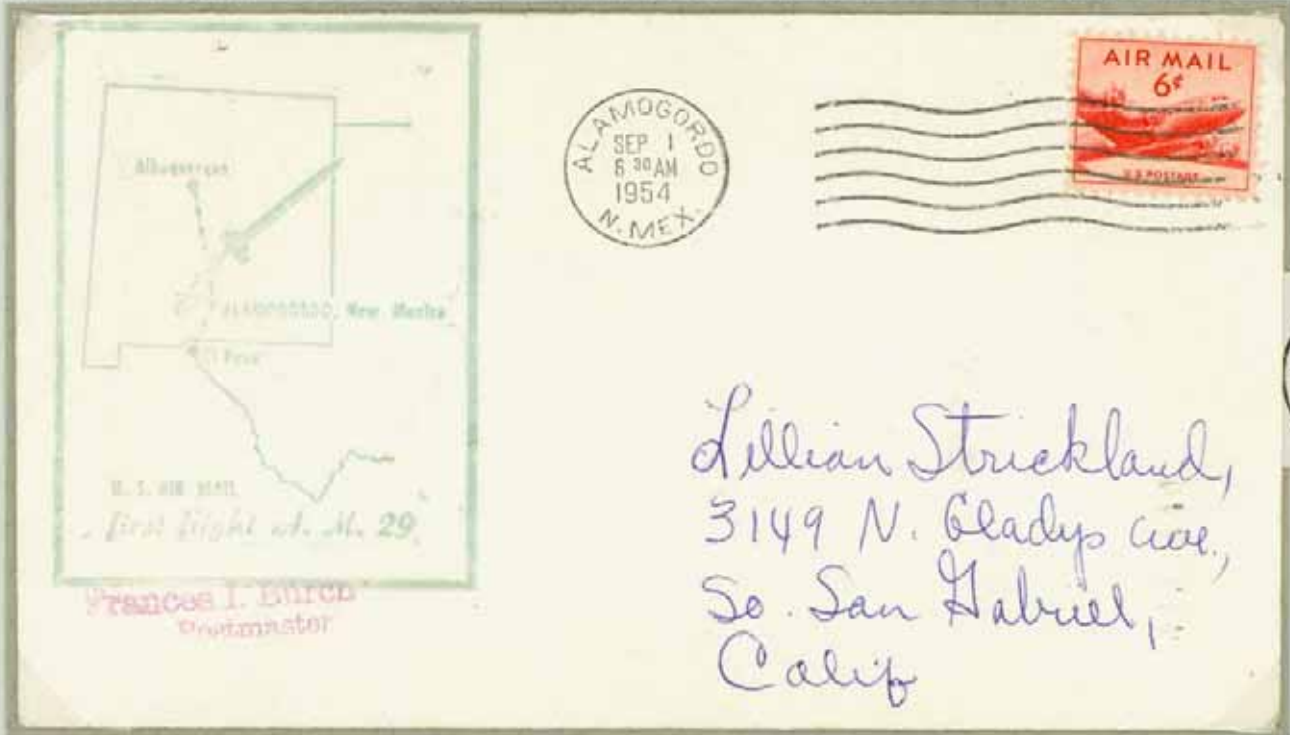 Albuquerque
ALAMOGORDO, New Mexico
El Paso
U. S. AIR MAIL
first flight rt. A. M. 29
Frances I. Burch
Postmaster
ALAMOGORDO
SEP 1
6 30 AM
1954
N. MEX.
AIR MAIL
6¢
U S POSTAGE
Lillian Strickland,
3149 N. Gladys Ave.,
So. San Gabriel,
Calif